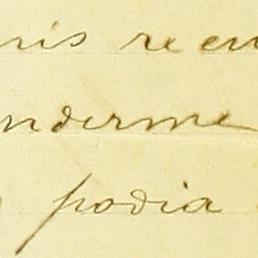 nis re en
nderme
podia